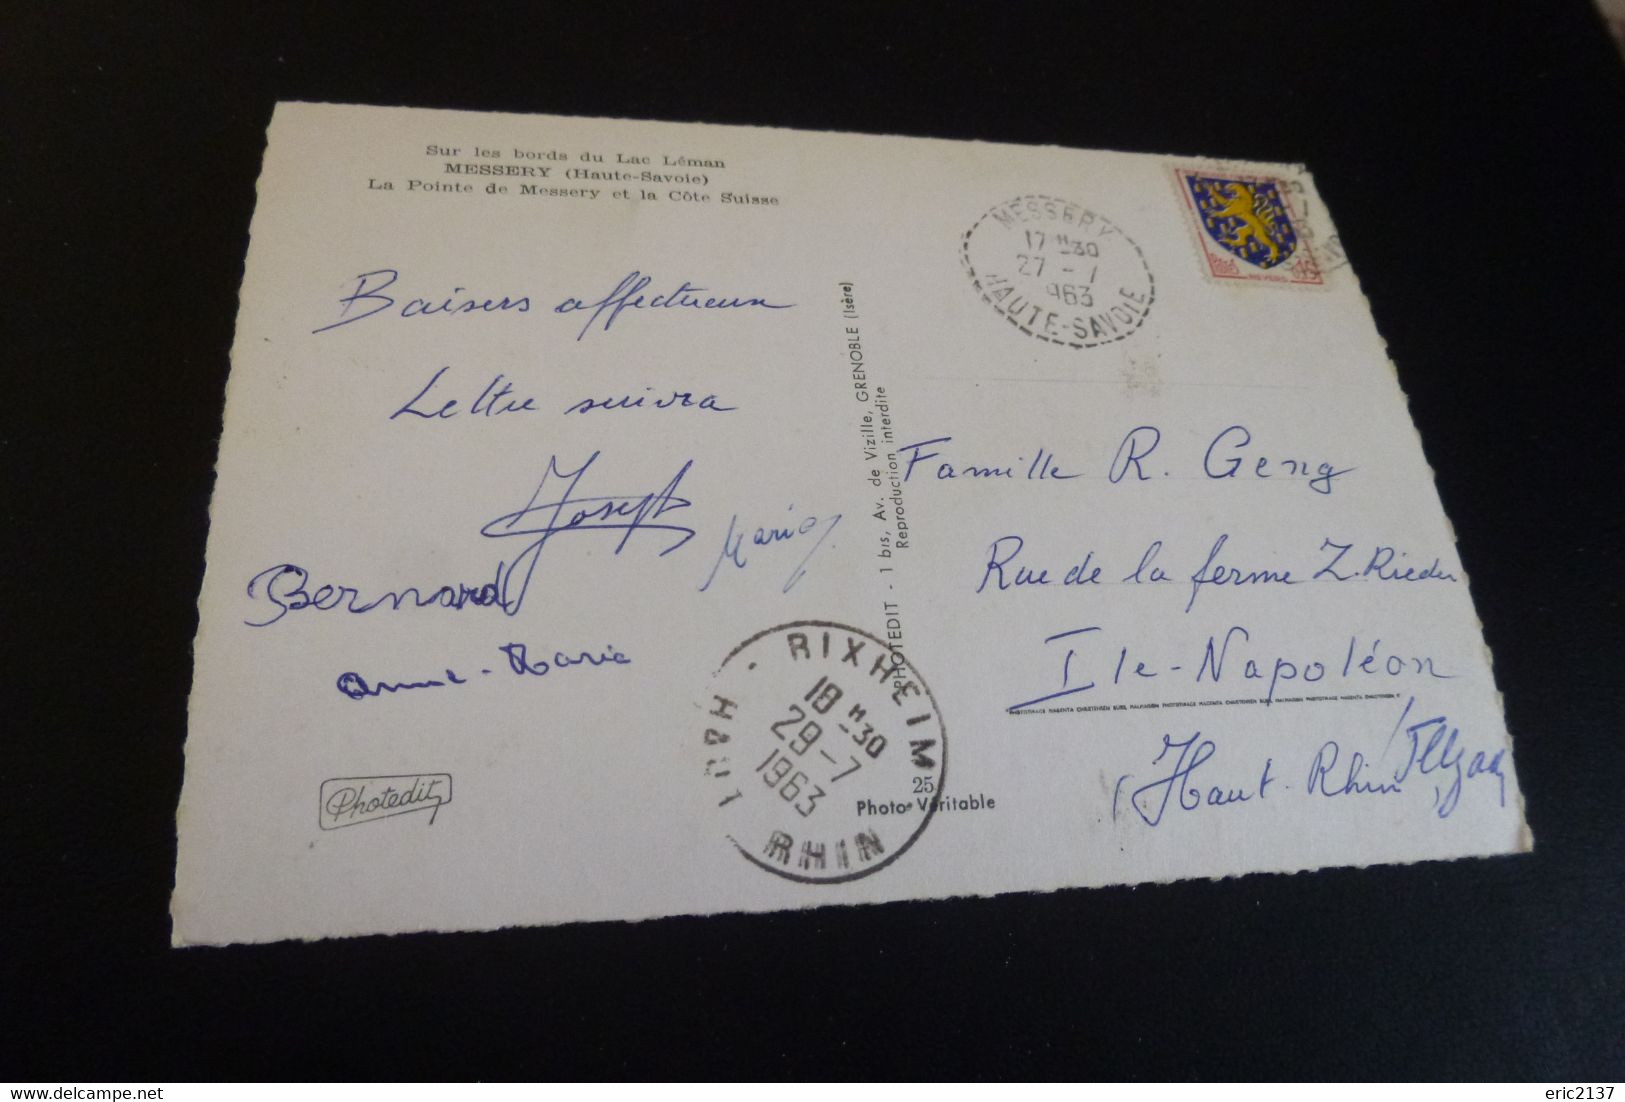 Sur les bords du Lac Léman
MESSERY (Haute-Savoie)
La Pointe de Messery et la Côte Suisse
Baisers affectueux
Lettre suivra
Joseph
Bernard
Anne-Marie
PHOTEDIT - 1 bis, Av. de Vizille, GRENOBLE (Isère)
Reproduction interdite
MESSERY
17 H 30
27 - 7
1963
HAUTE-SAVOIE
Famille R. Geng
Rue de la ferme Z. Rieder
Ile-Napoléon
(Haut-Rhin)
RIXHEIM
18 H 30
29-7
1963
HAUT
RHIN
25
Photo Véritable
Photedit
eric2137